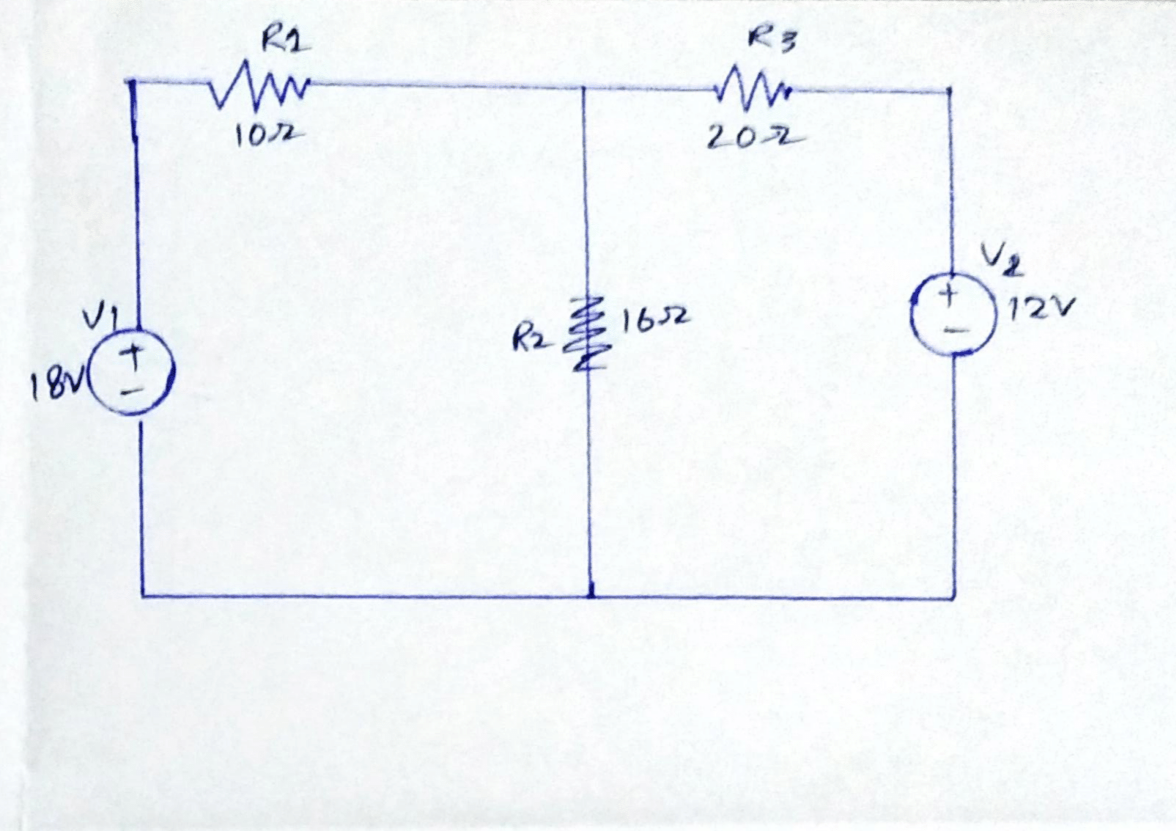 R1
10Ω
R3
20Ω
V1
18V
+
−
R2
16Ω
V2
12V
+
−